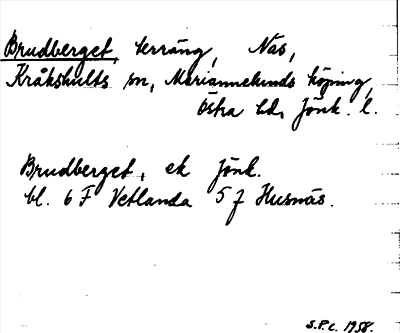 Brudberget, terräng, Näs,
Kråkshults sn, Mariannelunds köping,
Östra hd, Jönk. l.
Brudberget, ek Jönk.
bl. 6 F Vetlanda 5 j Husnäs.
S.P.L. 1958.